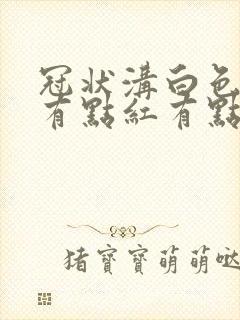 冠狀溝白色
有點紅有點
猪寶寶萌萌哒